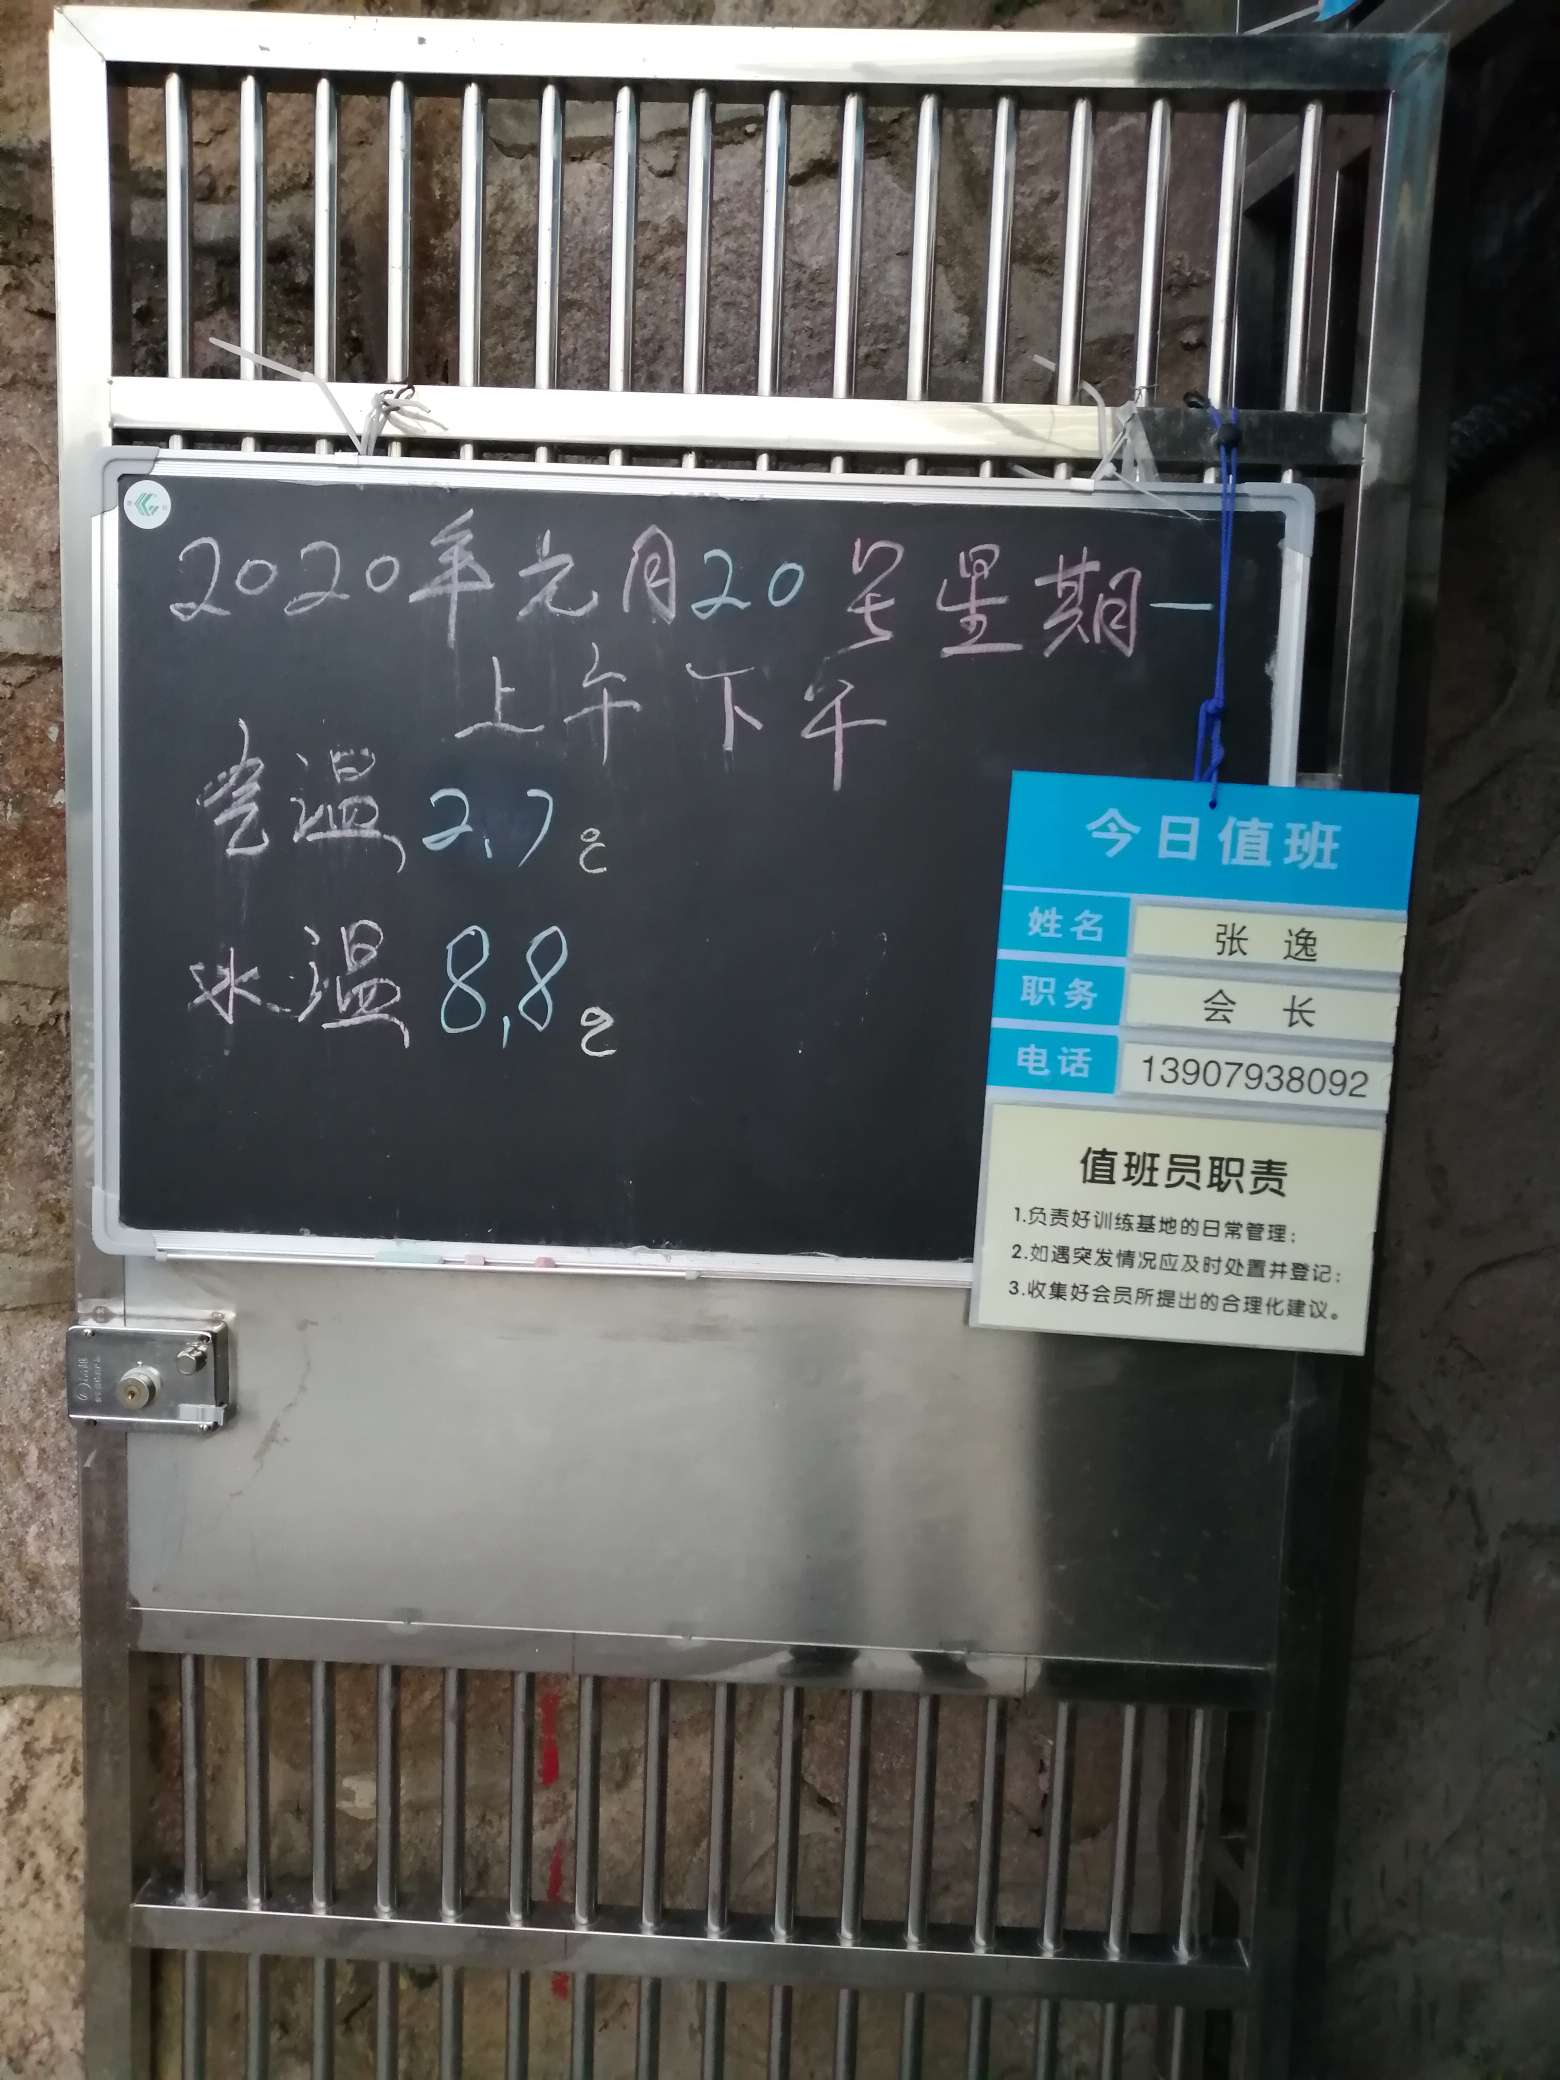 2020年元月20号星期一
上午 下午
气温 2.7℃
水温 8.8℃
今日值班
姓名 张 逸
职务 会 长
电话 13907938092
值班员职责
1.负责好训练基地的日常管理;
2.如遇突发情况应及时处置并登记;
3.收集好会员所提出的合理化建议。